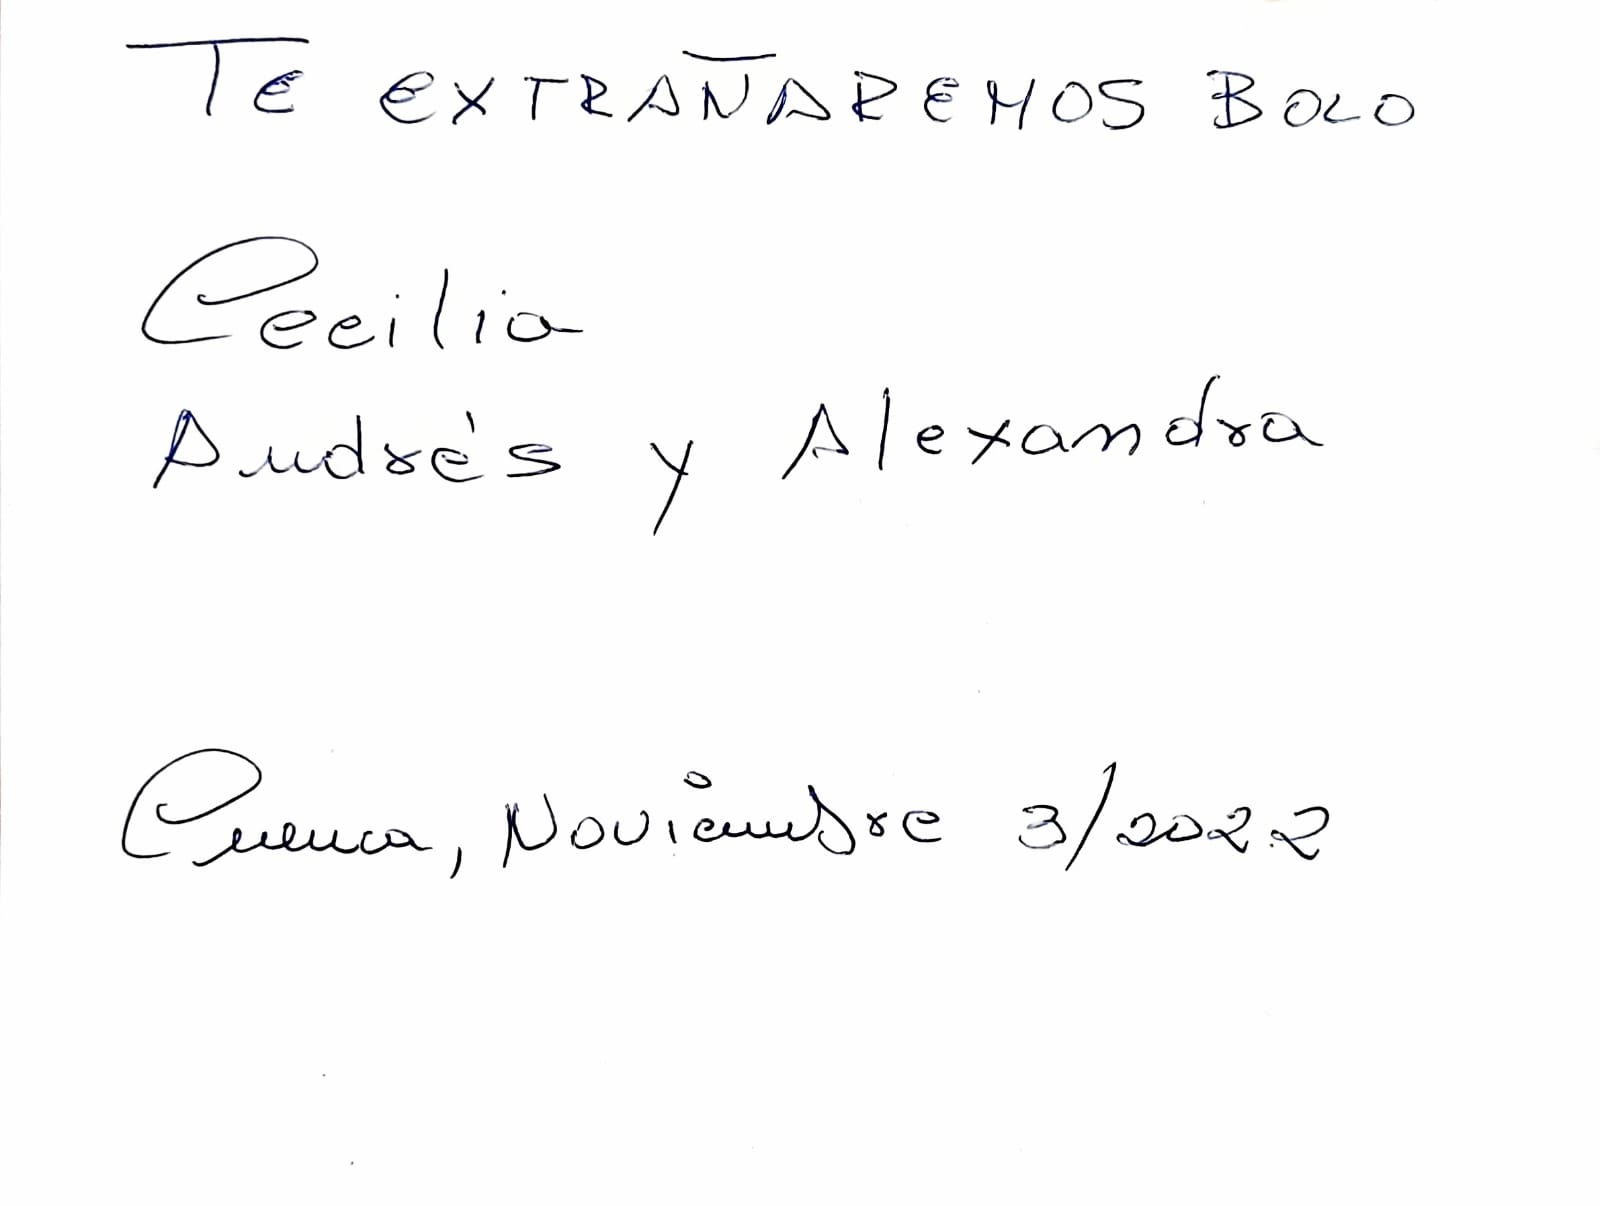 TE EXTRAÑAREMOS BOLO
Cecilia
Andrés y Alexandra
Cuenca, Noviembre 3/2022